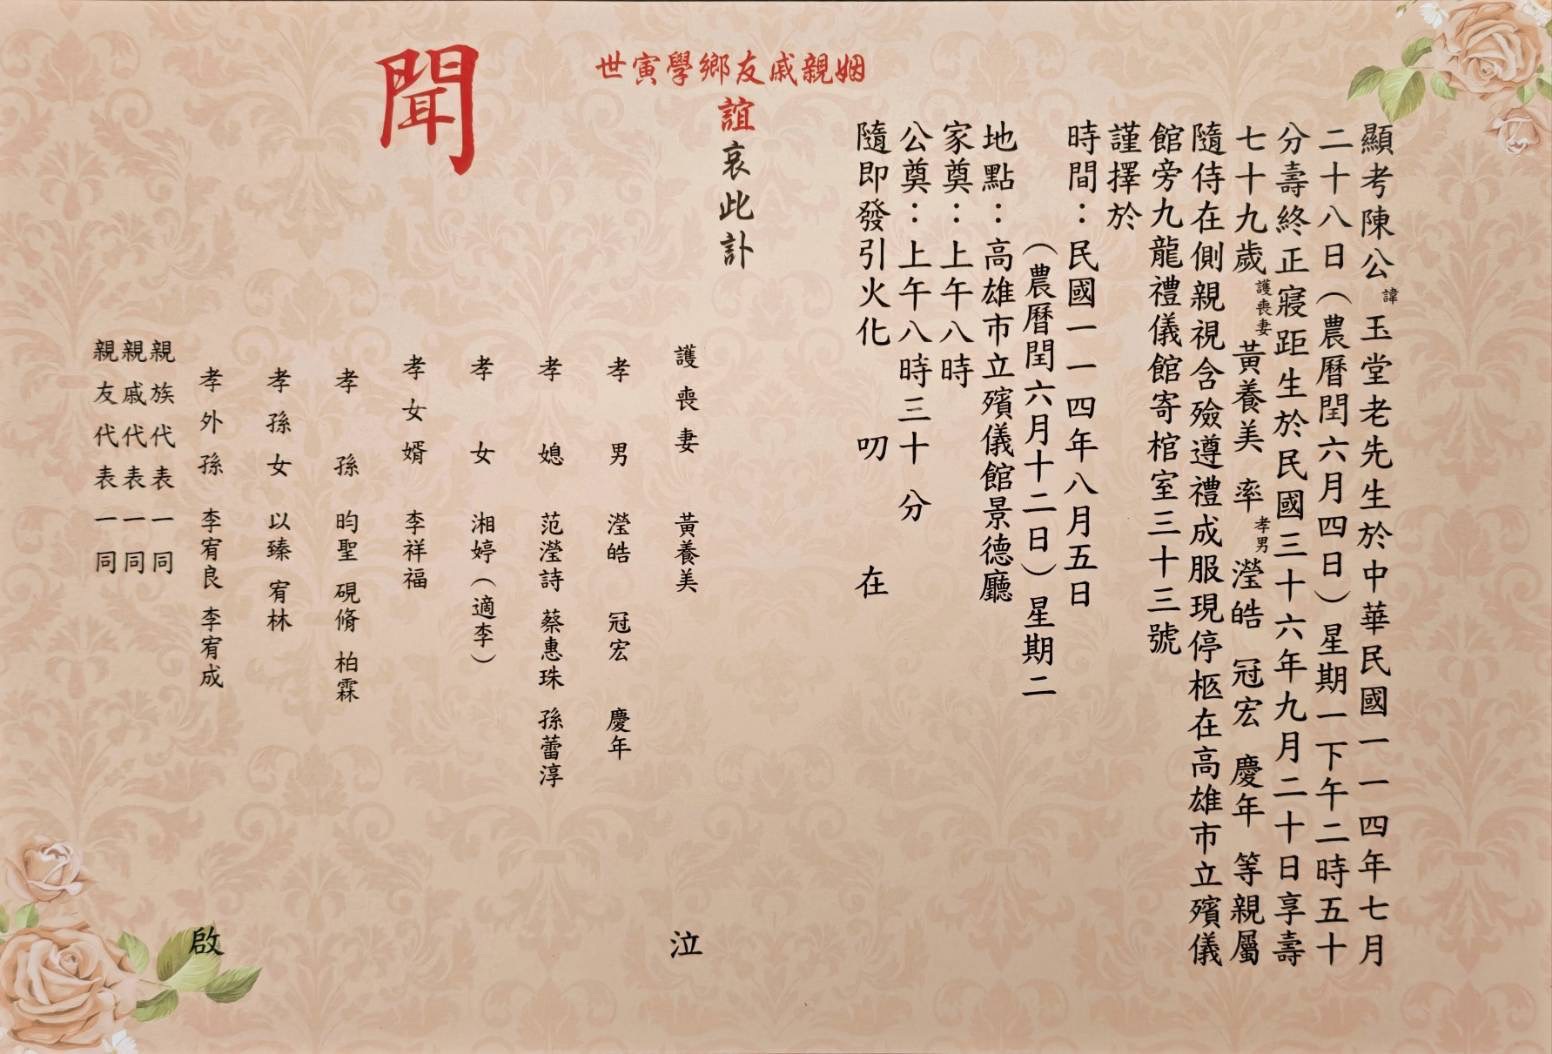 顯考陳公諱玉堂老先生於中華民國一一四年七月
二十八日（農曆閏六月四日）星期一下午二時五十
分壽終正寢距生於民國三十六年九月二十日享壽
七十九歲護喪妻黃養美 率孝男瀅皓 冠宏 慶年 等親屬
隨侍在側親視含殮遵禮成服現停柩在高雄市立殯儀
館旁九龍禮儀館寄棺室三十三號
謹擇於
時間：民國一一四年八月五日
（農曆閏六月十二日）星期二
地點：高雄市立殯儀館景德廳
家奠：上午八時
公奠：上午八時三十分
隨即發引火化 叨在
姻親戚友鄉學寅世
誼哀此訃
聞
護喪妻 黃養美 泣
孝男 瀅皓 冠宏 慶年
孝媳 范瀅詩 蔡惠珠 孫蕾淳
孝女 湘婷（適李）
孝女婿 李祥福
孝孫 昀聖 硯脩 柏霖
孝孫女 以臻 宥林
孝外孫 李宥良 李宥成 啟
親族代表一同
親戚代表一同
親友代表一同